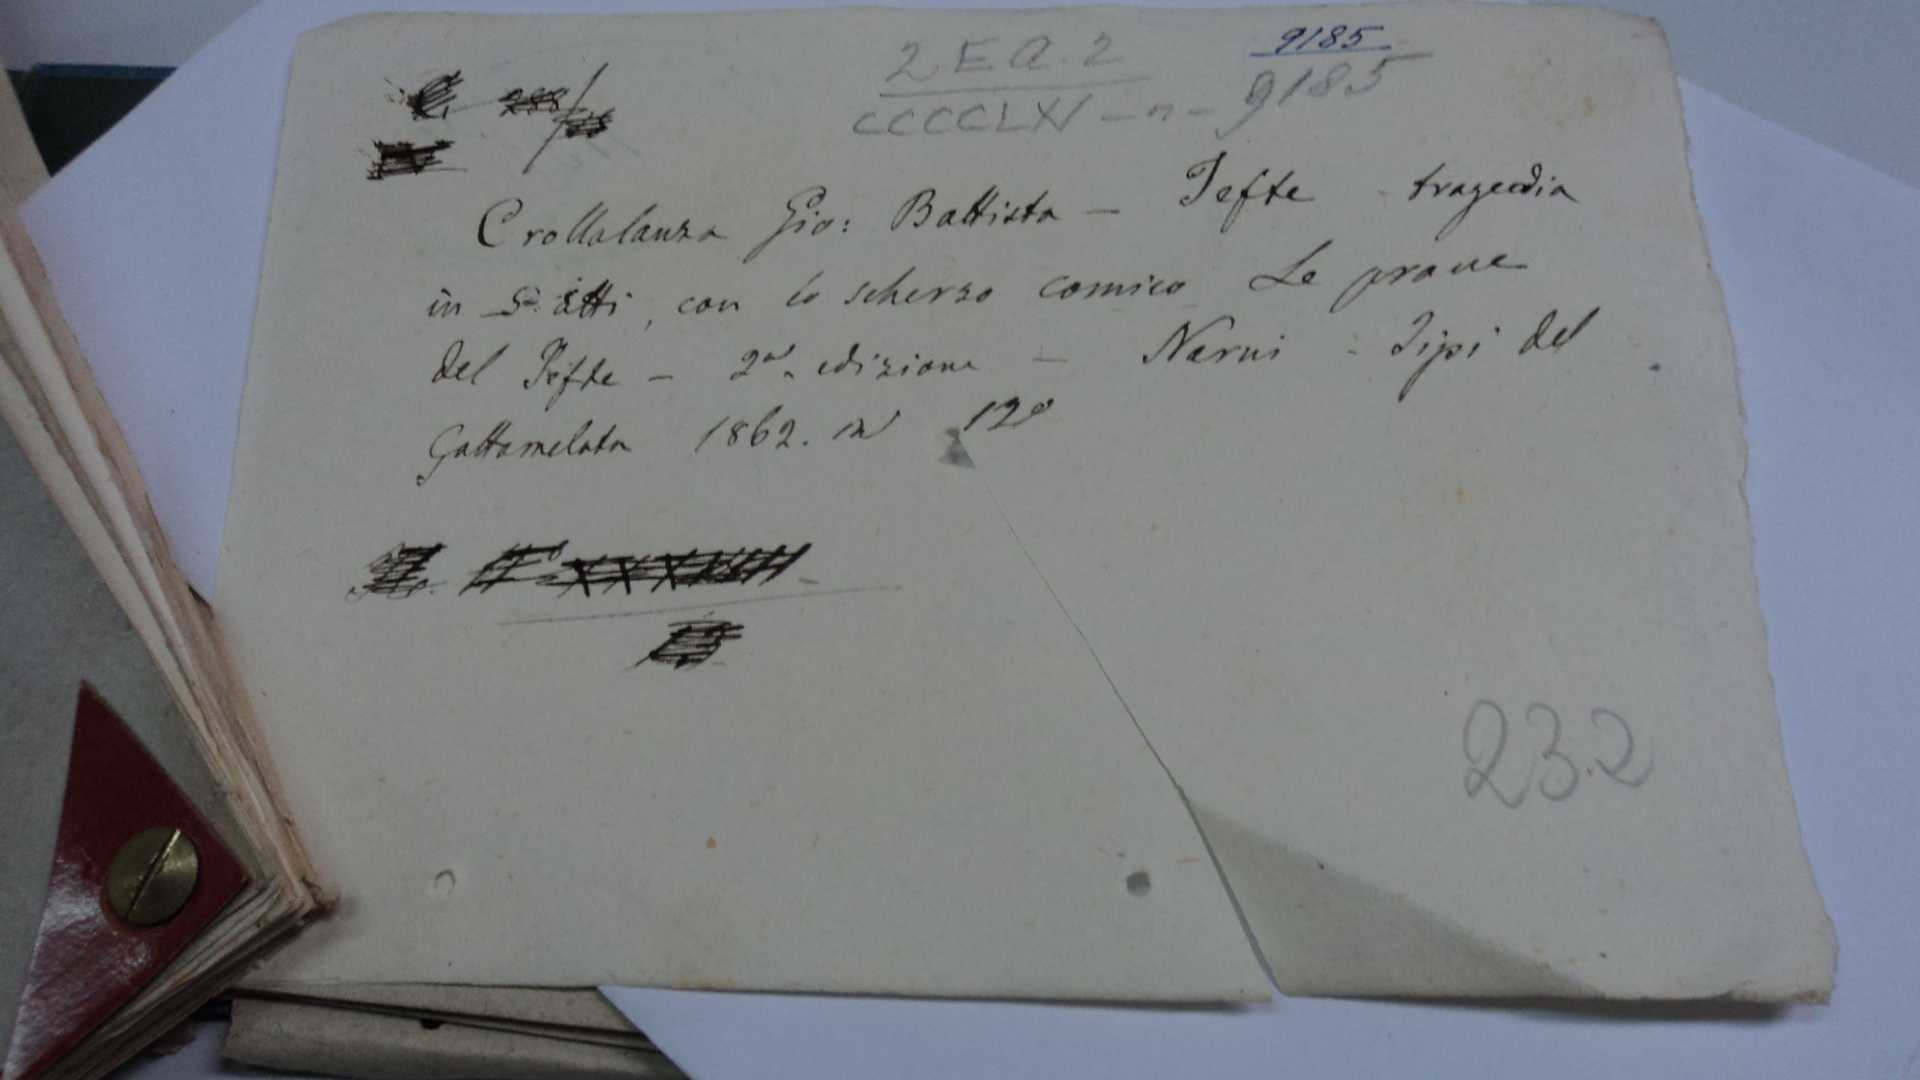 2 E a. 2
9185
CCCCLXV - n - 9185
Crollalanza Gio: Battista — Jefte tragedia
in 5 atti, con lo scherzo comico Le prove
del Jefte — 2a. edizione — Narni - Tipi del
Gattamelata 1862. in 12o
232